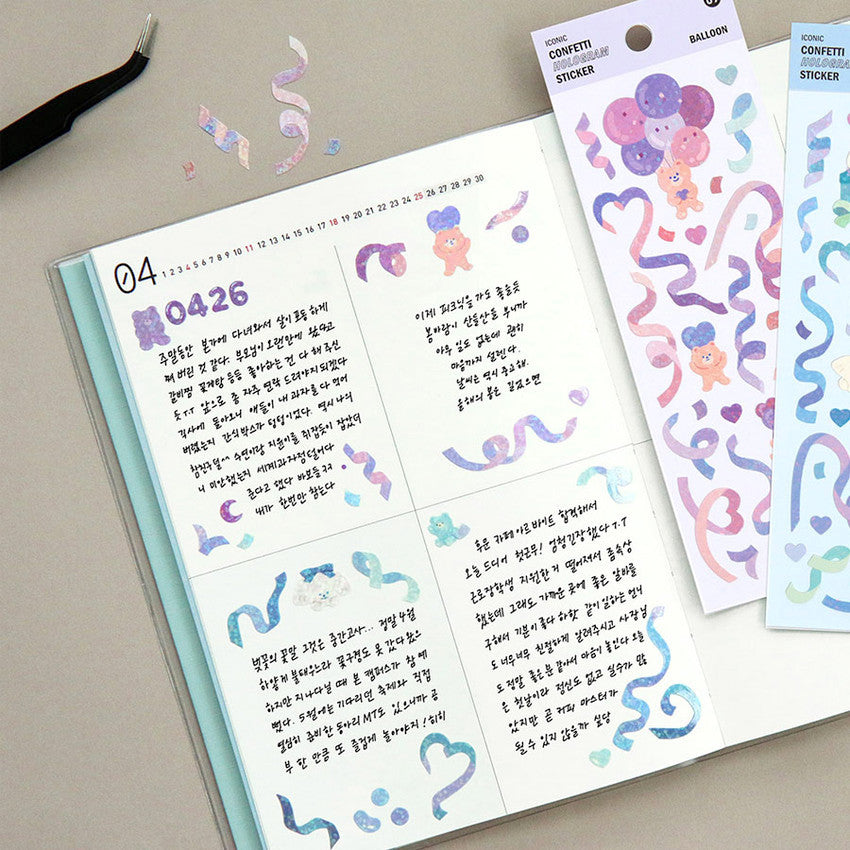 ICONIC
CONFETTI
HOLOGRAM
STICKER
BALLOON
ICONIC
CONFETTI
HOLOGRAM
STICKER
04 1 2 3 4 5 6 7 8 9 10 11 12 13 14 15 16 17 18 19 20 21 22 23 24 25 26 27 28 29 30
0426
주말동안 본가에 다녀와서 살이 포동하게
쪄 버린 것 같다. 부모님이 오랜만에 왔다고
갈비찜 꽃게탕 등등 좋아하는 건 다 해 주신
듯 T.T 앞으로 좀 자주 연락 드려야지 되겠다
긱사에 돌아오니 애들이 내 과자를 다 먹어
버렸는지 간식박스가 텅텅이었다. 역시 나의
참친구덜^^ 수연이랑 지윤이를 쥐잡듯이 잡았더
니 미안했는지 세계과자점 털어다
준다고 했다 바보들 ㅋㅋ
내가 한번만 참는다
이제 피크닉을 가도 좋을듯
봄바람이 살틀살틀 부니까
아무 일도 없는데 괜히
마음까지 설렌다.
날씨는 역시 중요해.
올해의 봄은 길었으면
벚꽃의 꽃말 그것은 중간고사... 정말 4월
하얗게 불태우느라 꽃구경도 못 갔다 왔으
하지만 지나다닐 때 본 캠퍼스가 참 예
뻤다. 5월에는 기다리던 축제와 직접
열심히 준비한 동아리 MT도 있으니까 공
부 한 만큼 또 즐겁게 놀아야지! 히히
흑운 카페 아르바이트 합격해서
오늘 드디어 첫근무! 엄청 긴장했다 T.T
근로장학생 지원한 거 떨어져서 좀 속상
했는데 그래도 가까운 곳에 좋은 알바를
구해서 기분이 좋다 하핫 같이 일하는 언니
도 너무너무 친절하게 알려주시고 사장님
도 정말 좋은 분 같아서 마음이 놓인다 오늘
은 첫날이라 정신도 없고 실수가 많
았지만 곧 커피 마스터가
될 수 있지 않을까 싶당